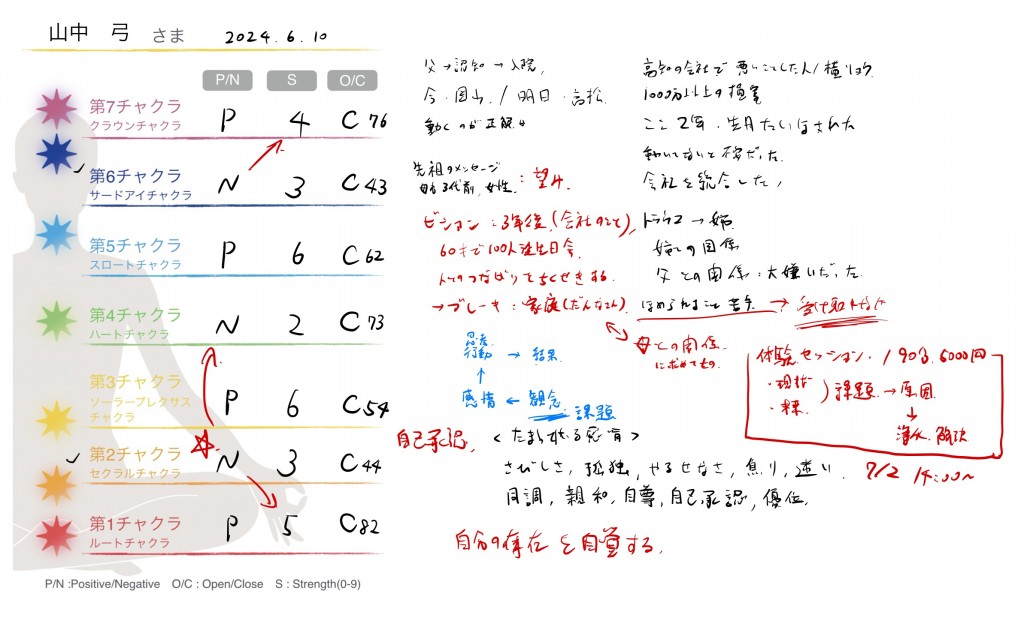 山中 弓 さま 2024.6.10
P/N S O/C
第7チャクラ
クラウンチャクラ
P 4 C76
第6チャクラ
サードアイチャクラ
N 3 C43
第5チャクラ
スロートチャクラ
P 6 C62
第4チャクラ
ハートチャクラ
N 2 C73
第3チャクラ
ソーラープレクサス
チャクラ
P 6 C54
第2チャクラ
セクラルチャクラ
N 3 C44
第1チャクラ
ルートチャクラ
P 5 C82
P/N :Positive/Negative O/C : Open/Close S : Strength(0-9)
父→認知→入院,
今・岡山 / 明日・高松
動くのが正解
先祖のメッセージ
3代前, 女性 : 望み
ビジョン:3年後(会社のこと),
60才で100人誕生日会
→ブレーキ:家庭(だんなさん)
行動 → 結果
↑
感情 ← 観念
課題
自己承認,
<たまっている感情>
さびしさ, 孤独, やるせなさ, 焦り, 迷い.
同調, 親和, 自尊, 自己承認, 優位,
自分の存在を自覚する.
高知の会社で悪いことした人/横リョウ
1000万以上の損害
ここ2年・
動いてないと不安だった.
会社を統合した,
トラウマ→姉
姉との関係
父との関係:大嫌いだった.
ほめられること苦手 → 受け取り
母との関係
に求めてたもの
体験セッション. / 90分, 5000円
・現状
・ )課題→原因
↓
浄化 解決
7/2 14:00〜